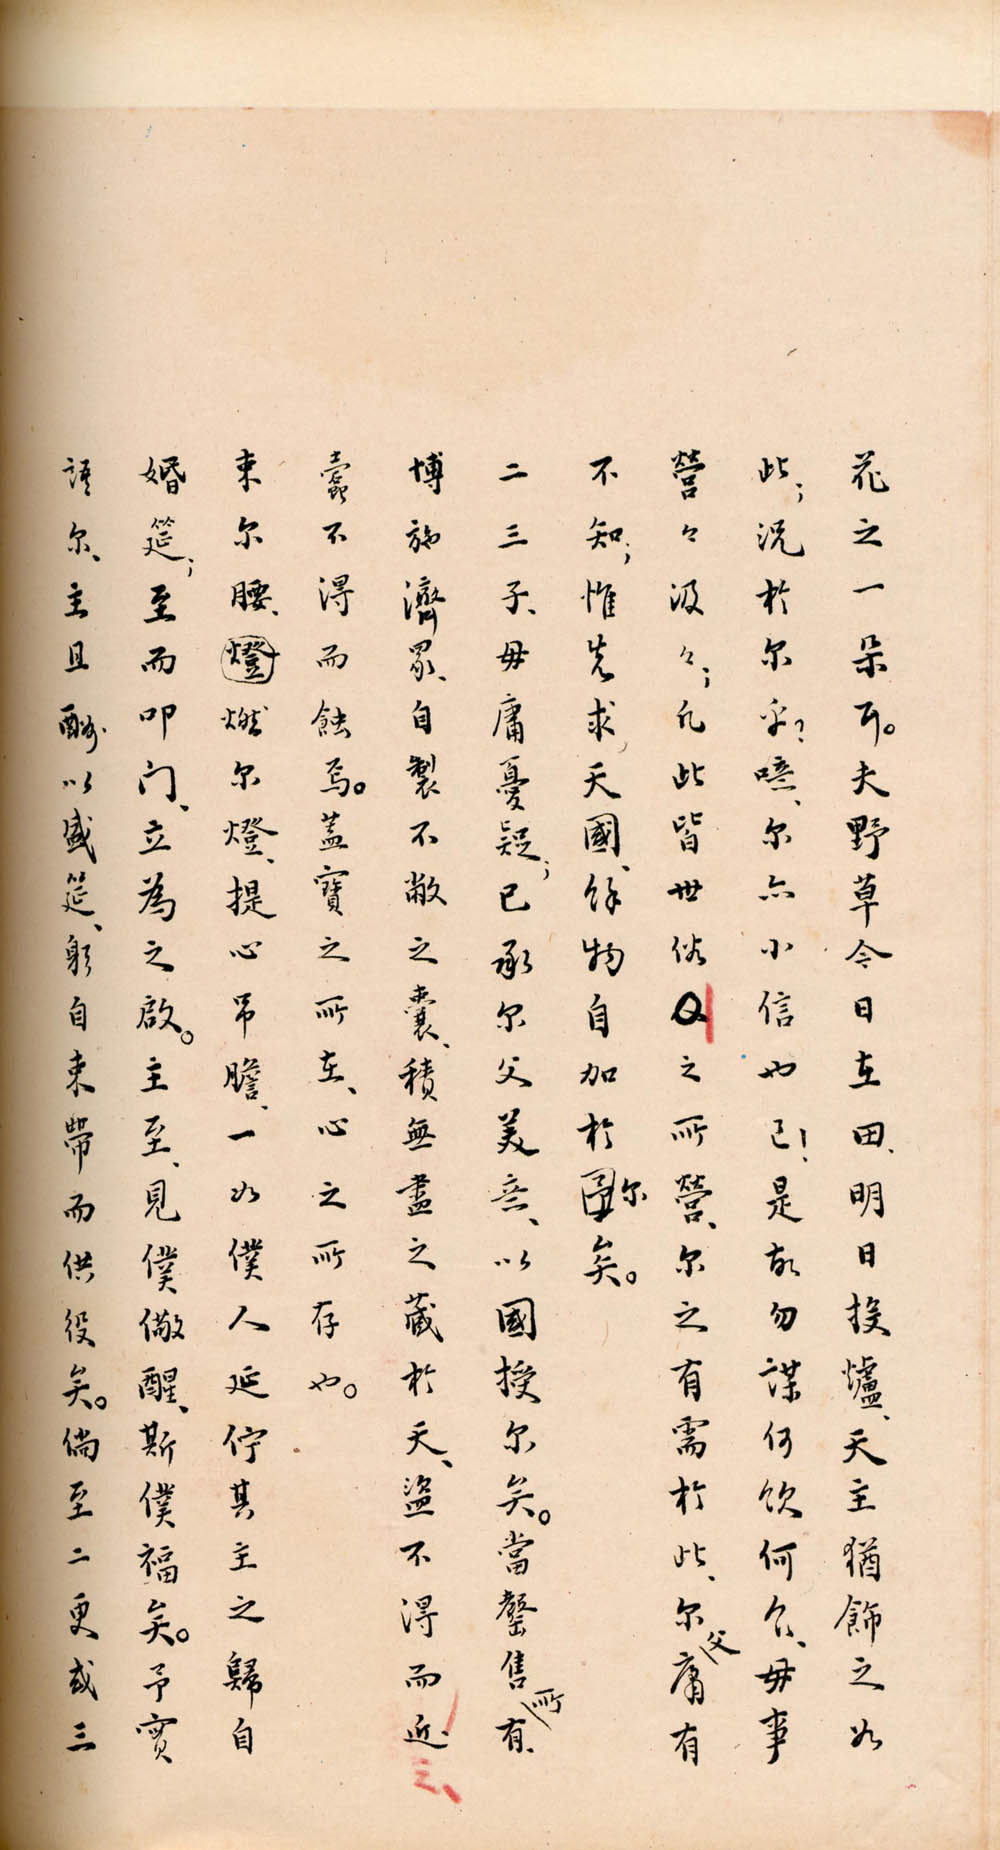 花之一朵耳。夫野草今日在田、明日投爐、天主猶飾之如
此；況於尔乎？噫、尔亦小信也已！是故勿謀何飲何食、毋事
營々汲々；凡此皆世俗之所營、尔之有需於此、尔父庸有
不知；惟先求天國、餘物自加於尔矣。
二三子、毋庸憂疑；已承尔父美意、以國授尔矣。當罄售所有、
博施濟眾、自製不敝之囊、積無盡之藏於天、盜不得而近之、
蠹不得而蝕焉。蓋寶之所在、心之所存也。
束尔腰、燃尔燈、提心吊膽、一如僕人延佇其主之歸自
婚筵；至而叩门、立為之啟。主至、見僕儆醒、斯僕福矣。予實
語尔、主且酬以盛筵、躬自束帶而供役矣。倘至二更或三